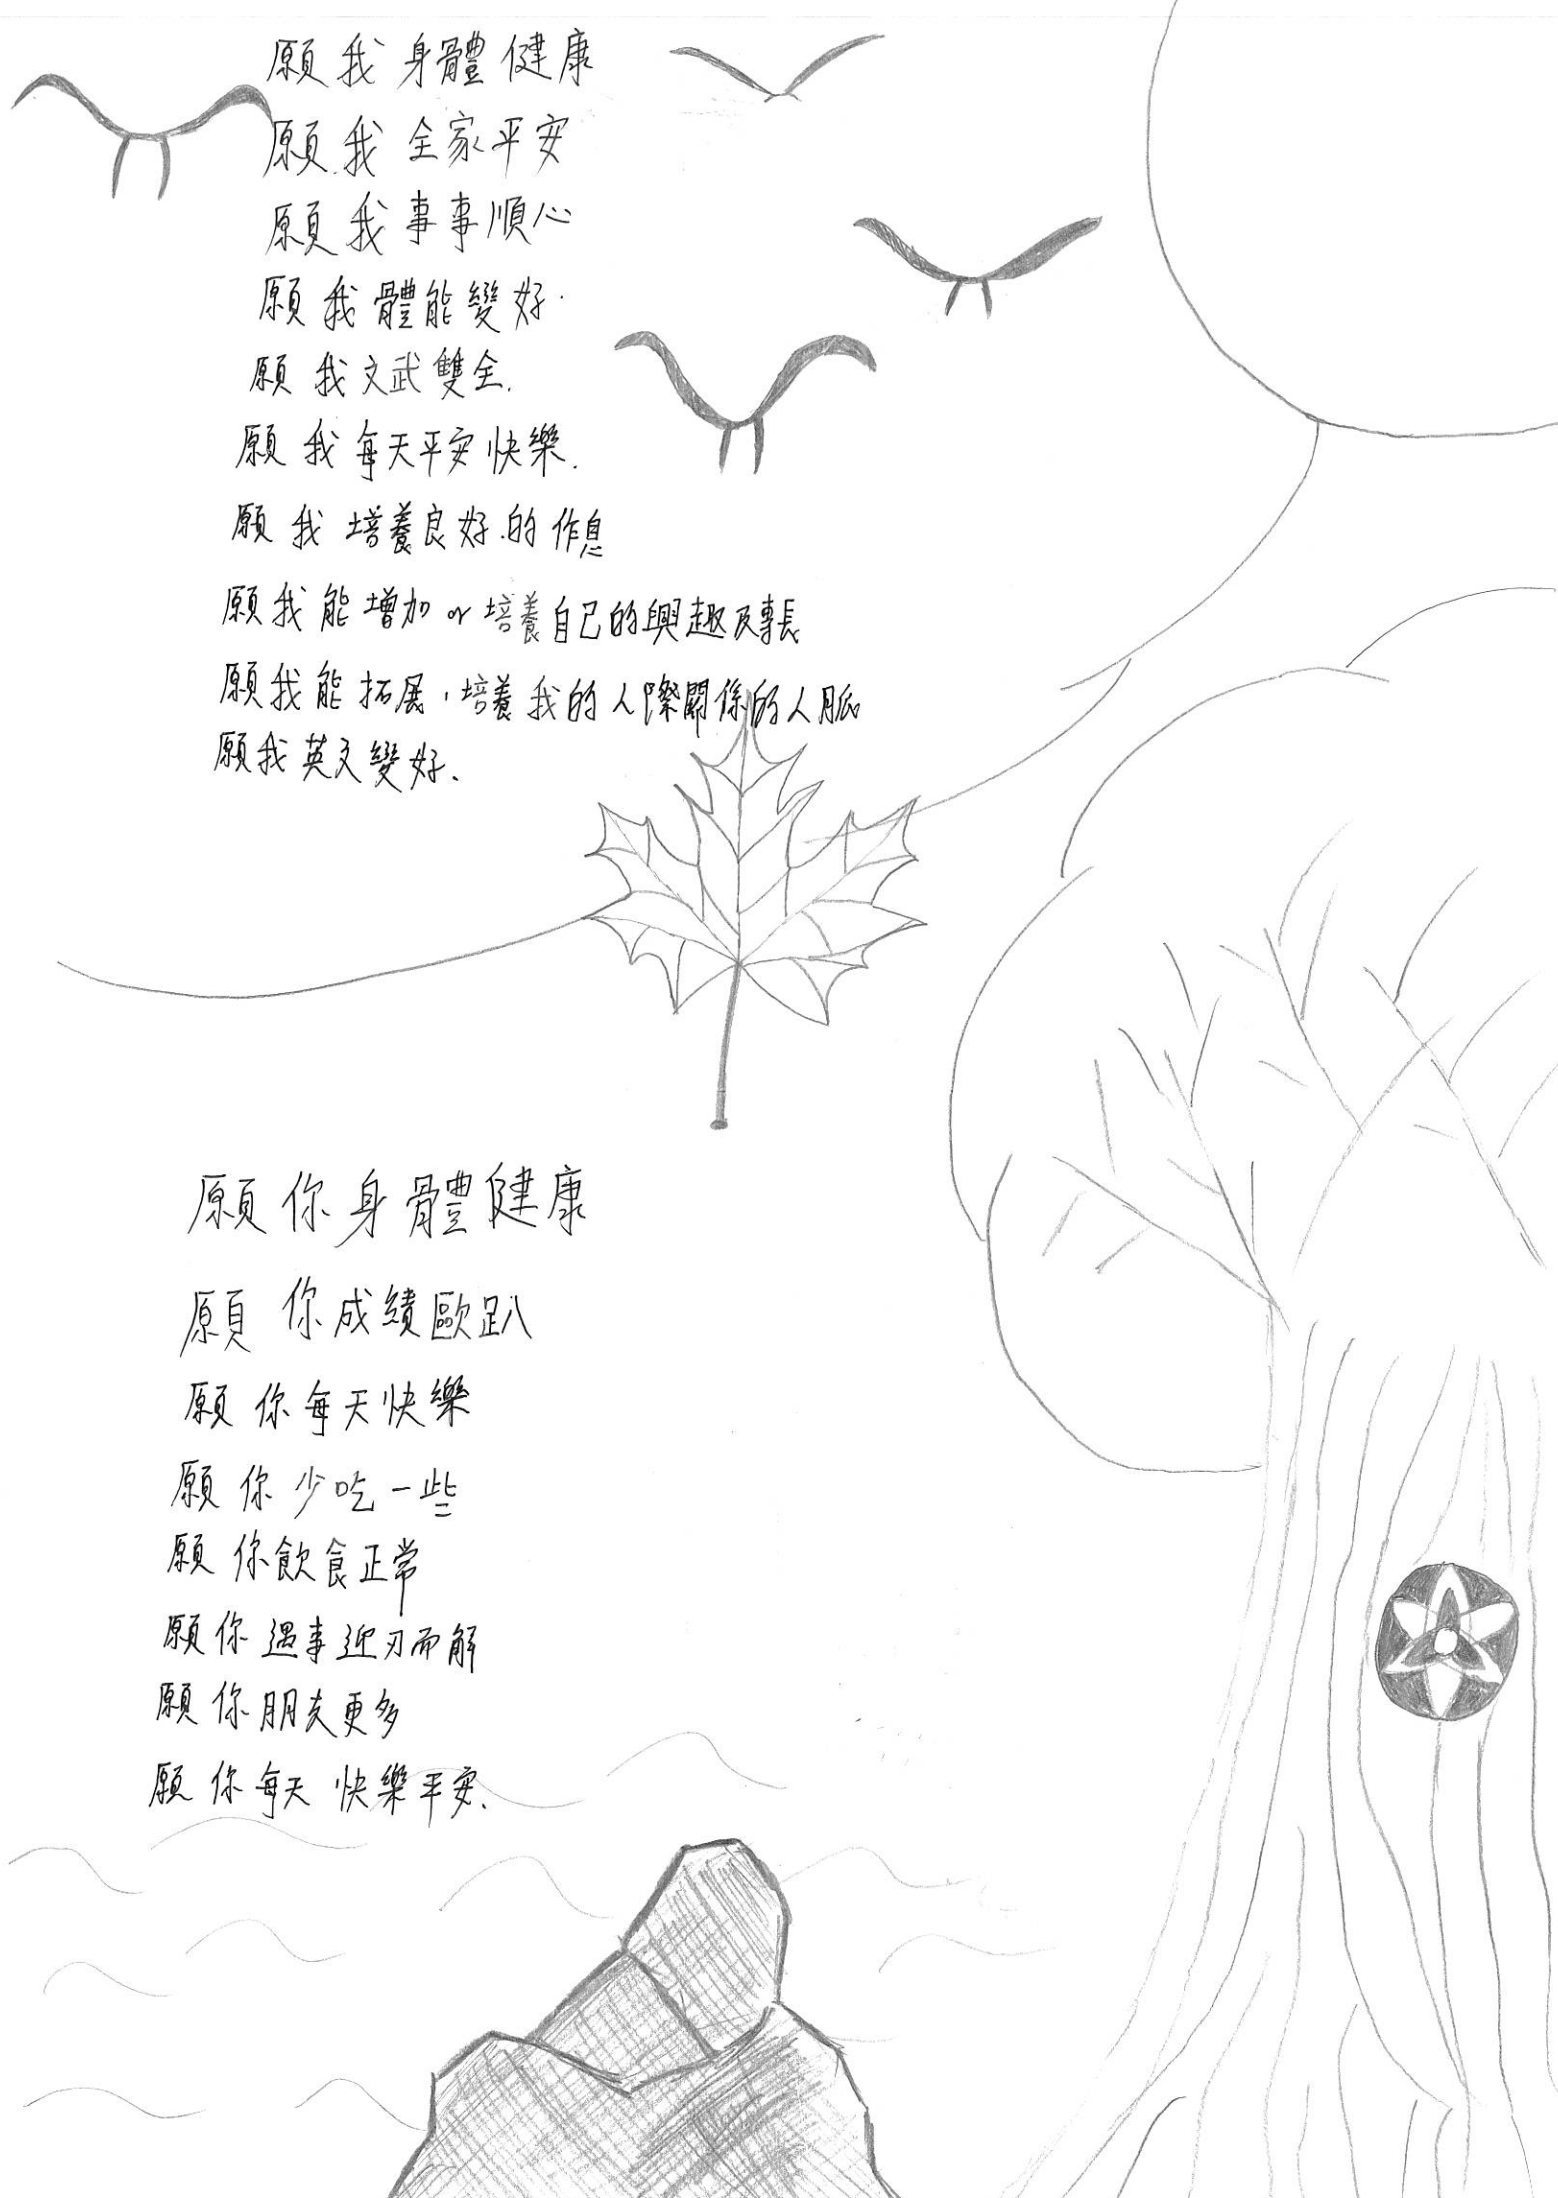 願我身體健康
願我全家平安
願我事事順心
願我體能變好.
願我文武雙全.
願我每天平安快樂.
願我培養良好的作息
願我能增加or培養自己的興趣及專長
願我能拓展,培養我的人際關係的人脈
願我英文變好、
願你身體健康
願你成績歐趴
願你每天快樂
願你少吃一些
願你飲食正常
願你遇事迎刃而解
願你朋友更多
願你每天快樂平安、